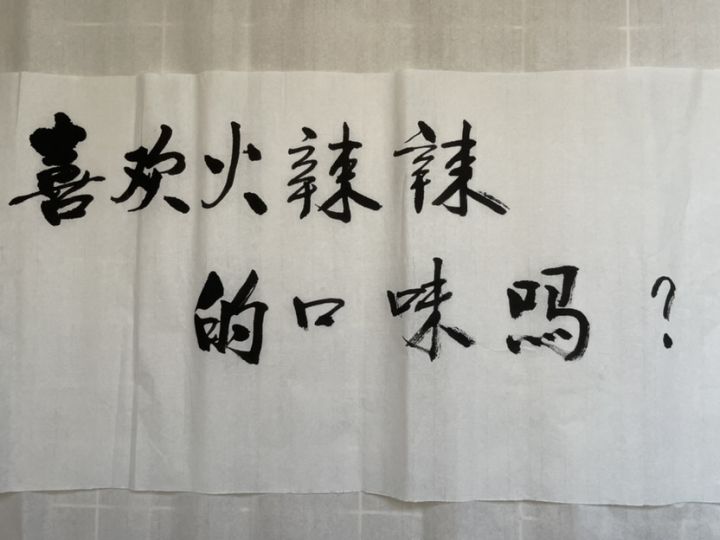 喜欢火辣辣
的口味吗?